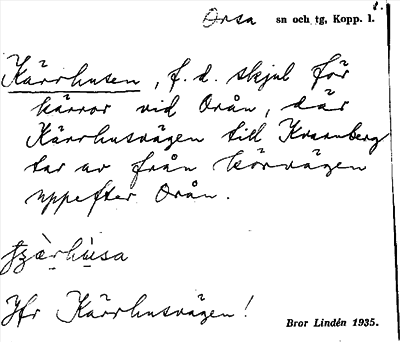 Orsa sn och tg, Kopp. l.
Kärrhusen, f.d. skjul för
kärror vid Orån, där
Kärrhusvägen till Kvarnberg
tar av från körvägen
uppefter Orån.
Jfr Kärrhusvägen!
Bror Lindén 1935.